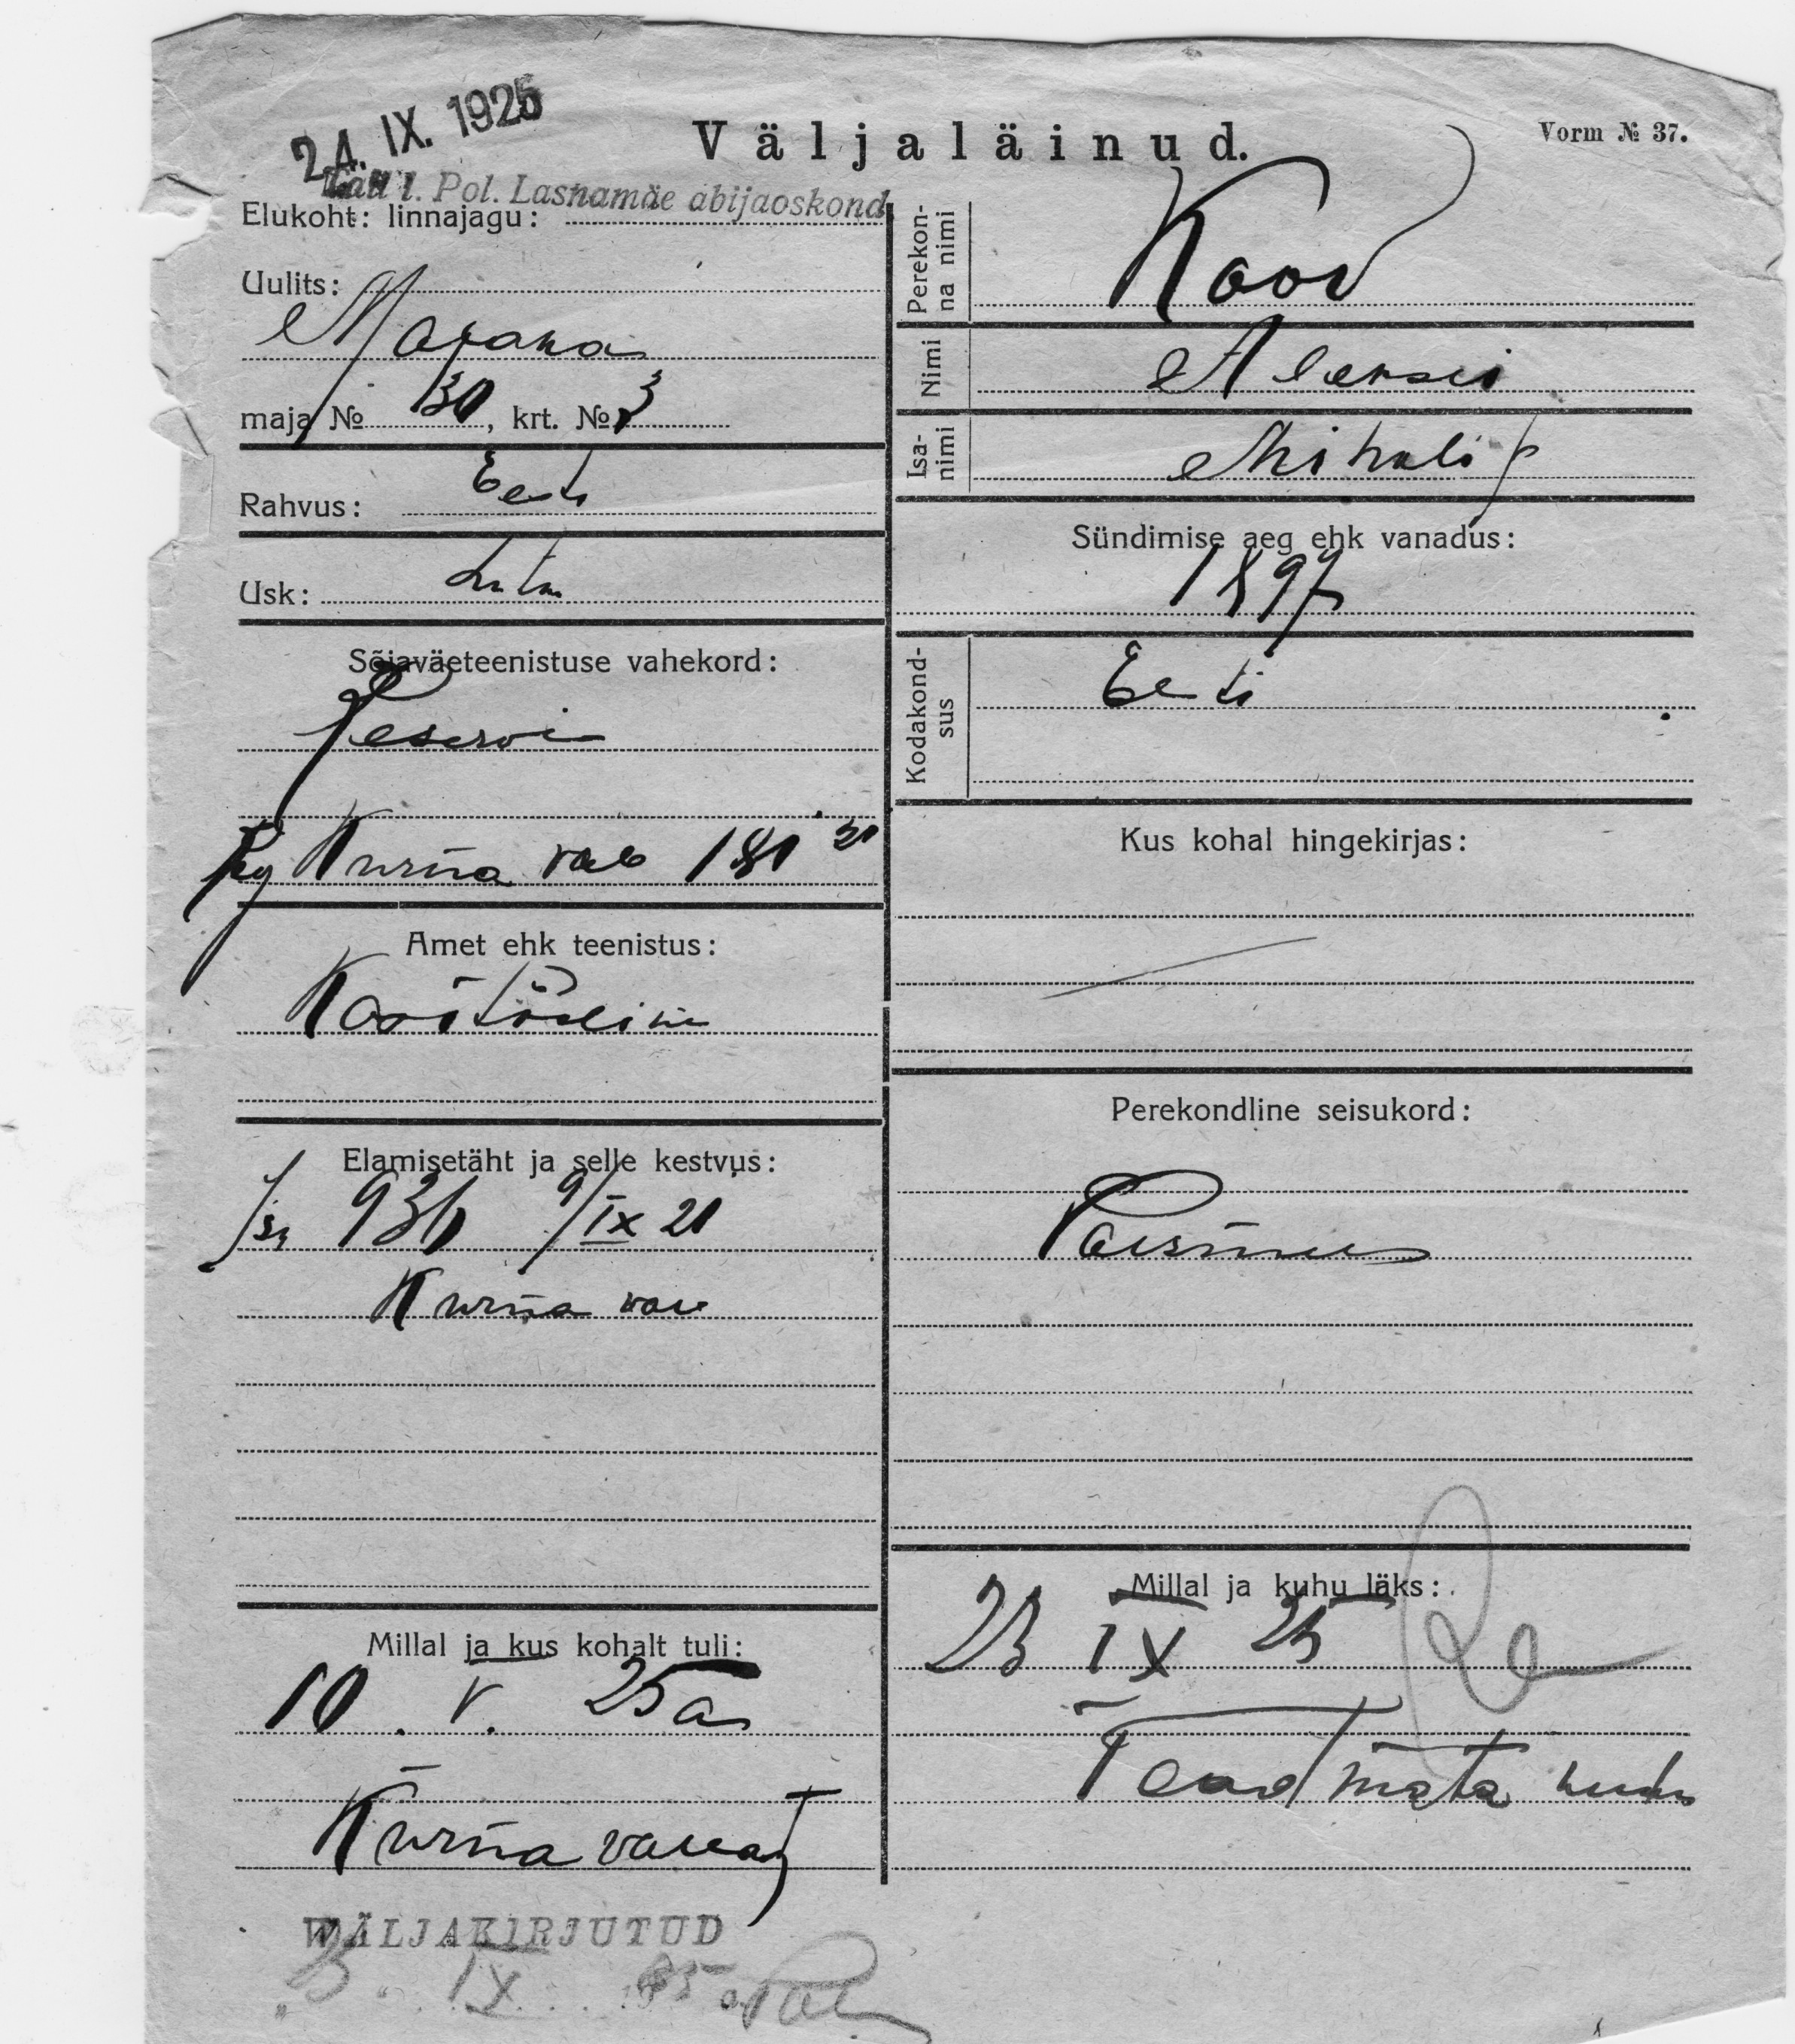 24. IX. 1925
Väljaläinud.
Vorm № 37.
Tall. l. Pol. Lasnamäe abijaoskond
Elukoht: linnajagu:
Uulits:
Majaka
maja № 30, krt. № 3
Rahvus: Eesti
Usk: Lutu
Sõjaväeteenistuse vahekord:
Reservi
Kurna 181 21
Amet ehk teenistus:
Amet ehk teenistus:
Elamisetäht ja selle kestvus:
936 9/IX 21
Kurna
Millal ja kus kohalt tuli:
10. V. 25 a
Kurna vallast
WÄLJAKIRJUTUD
IX 25
Perekonna nimi
Koov
Nimi
Aleksei
Isanimi
Mihkli p
Sündimise aeg ehk vanadus:
1897
Kodakondsus
Eesti
Kus kohal hingekirjas:
Perekondline seisukord:
Millal ja kuhu läks:
23 IX 25
Teadmata kuhu